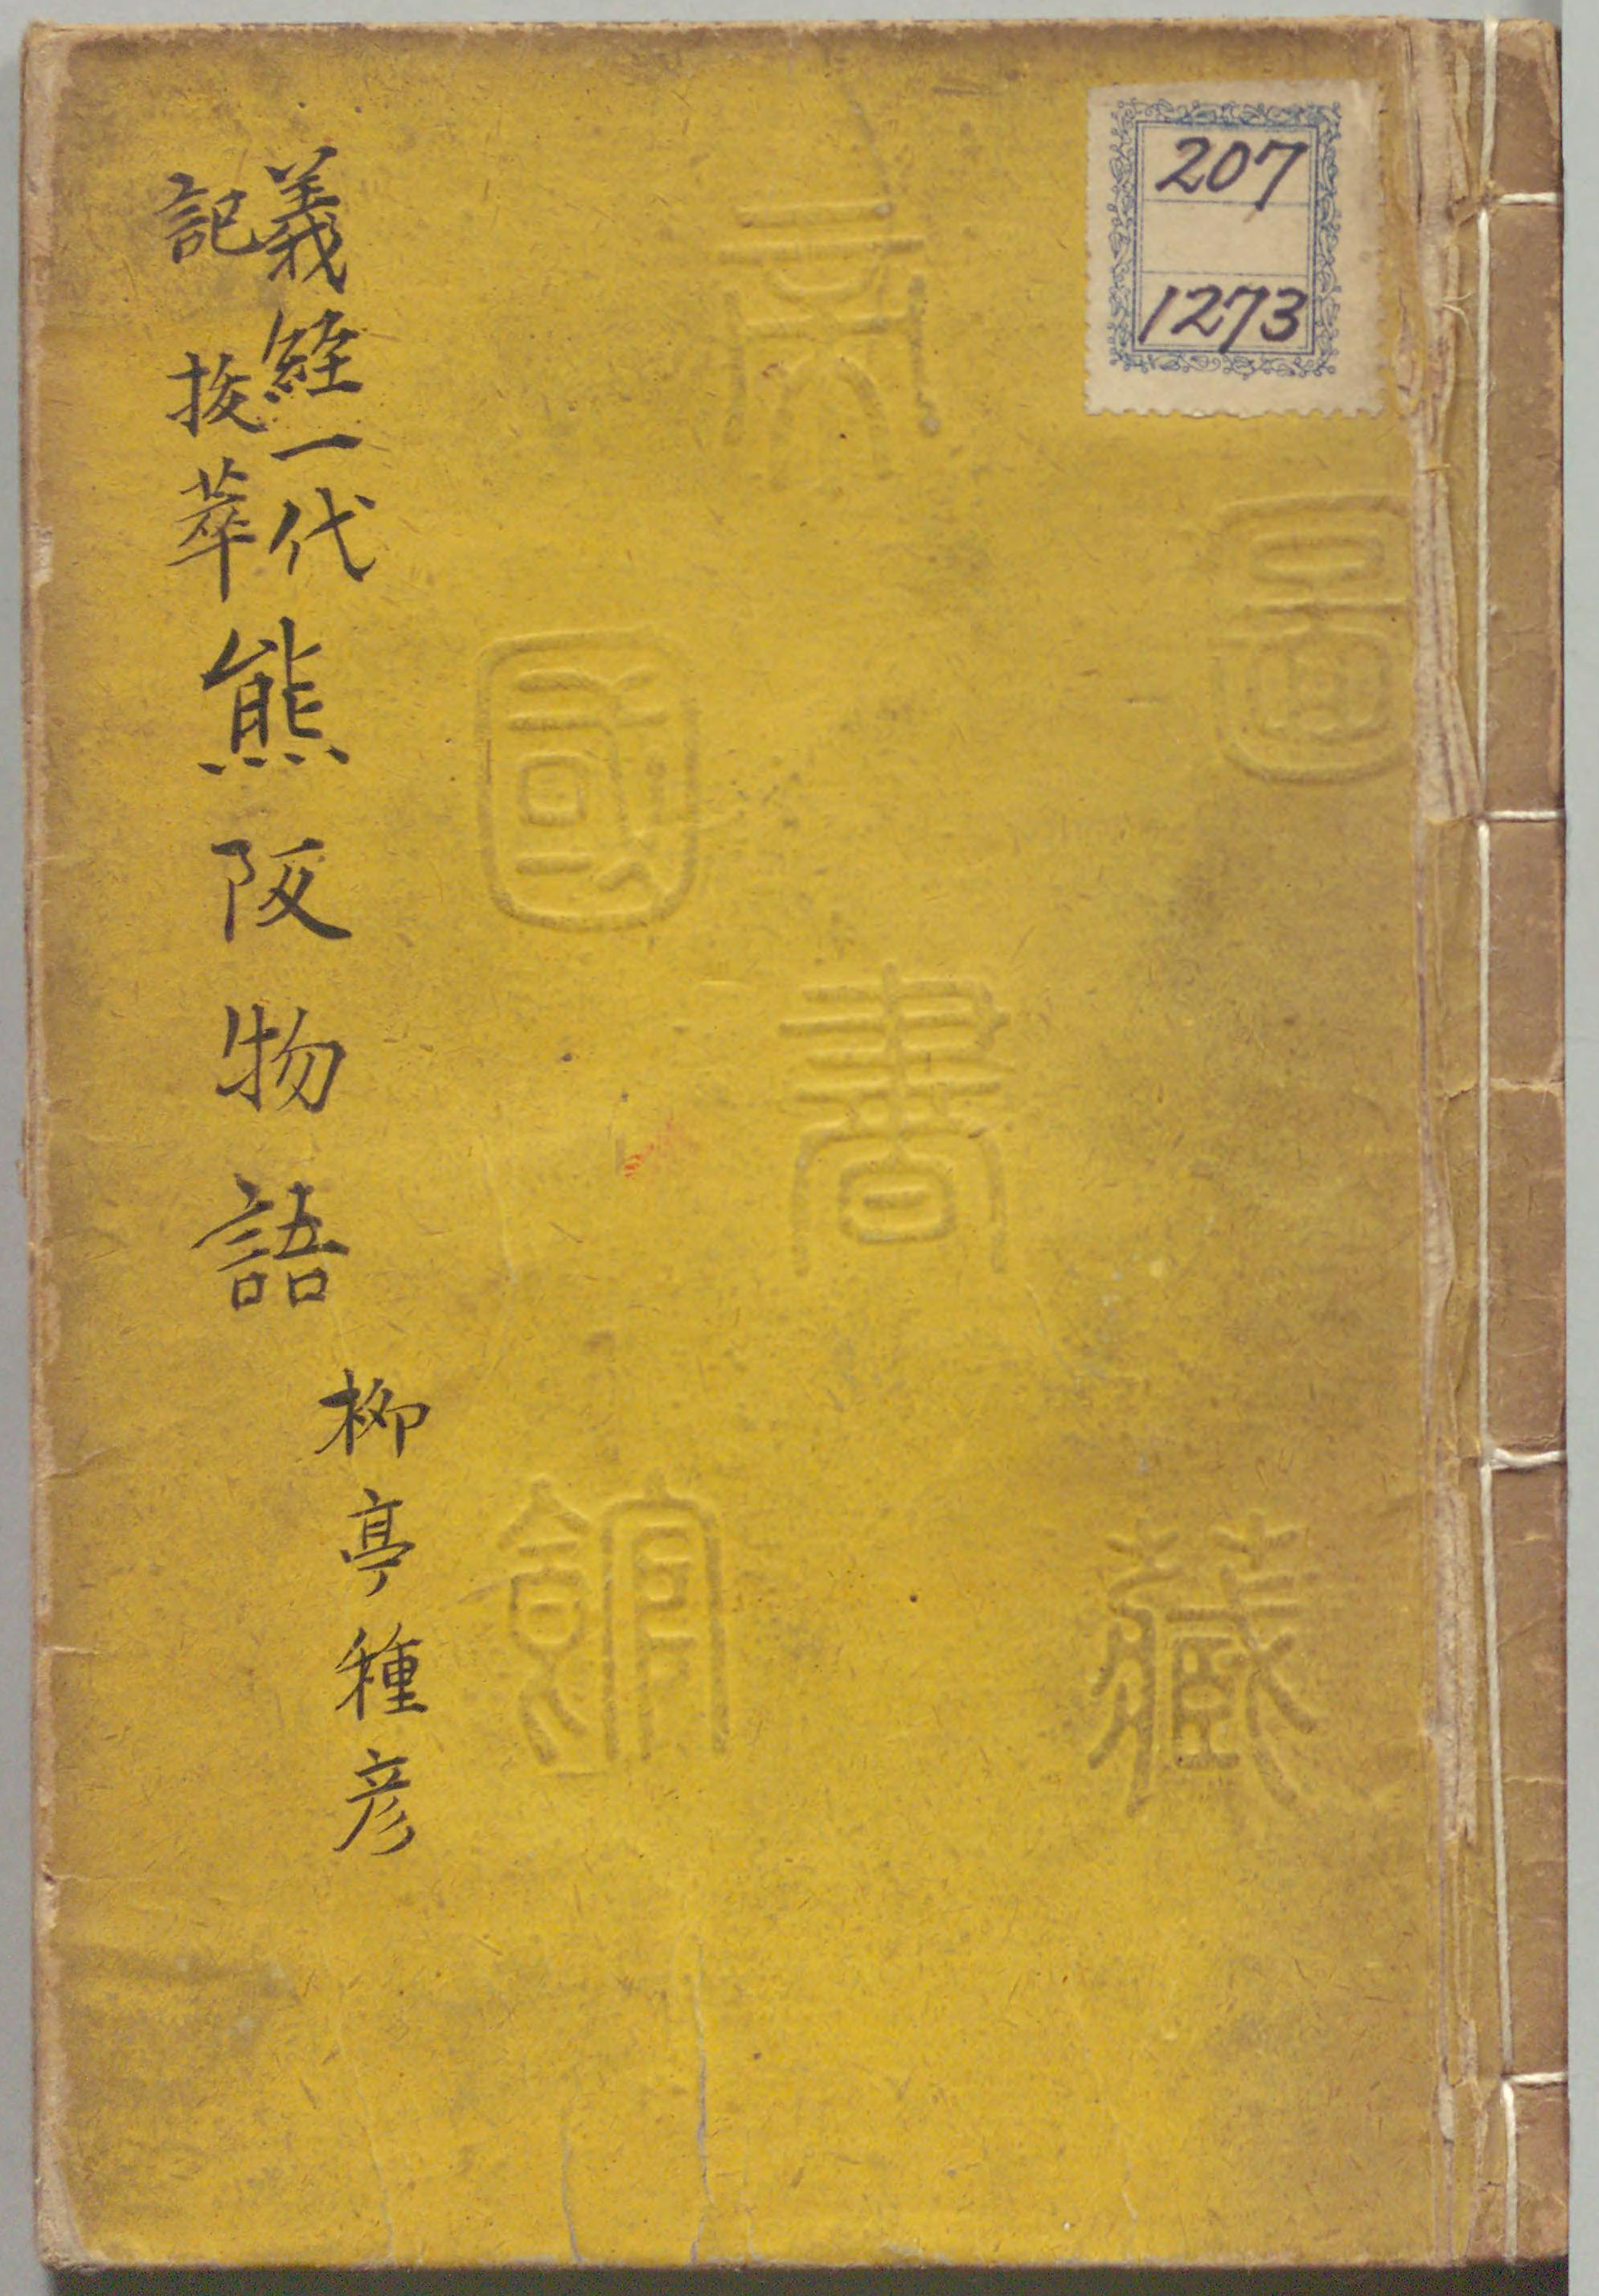 207
1273
帝國
圖書
館藏
義経一代
記 抜萃
熊阪物語
柳亭種彦